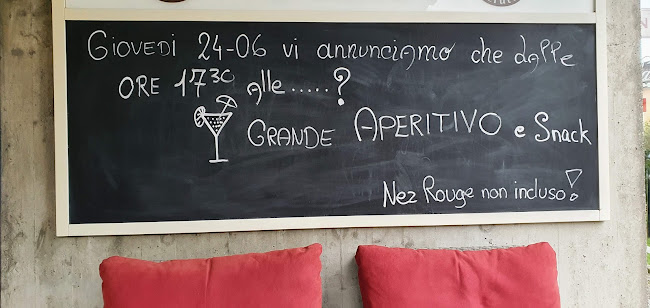 Giovedì 24-06 vi annunciamo che dalle
ore 17³⁰ alle.....?
Grande Aperitivo e Snack
Nez Rouge non incluso!